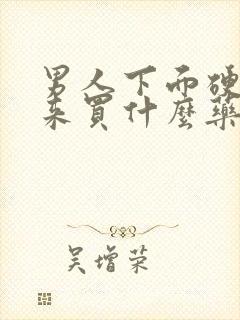 男人下面硬
来買什麼藥
吴增荣